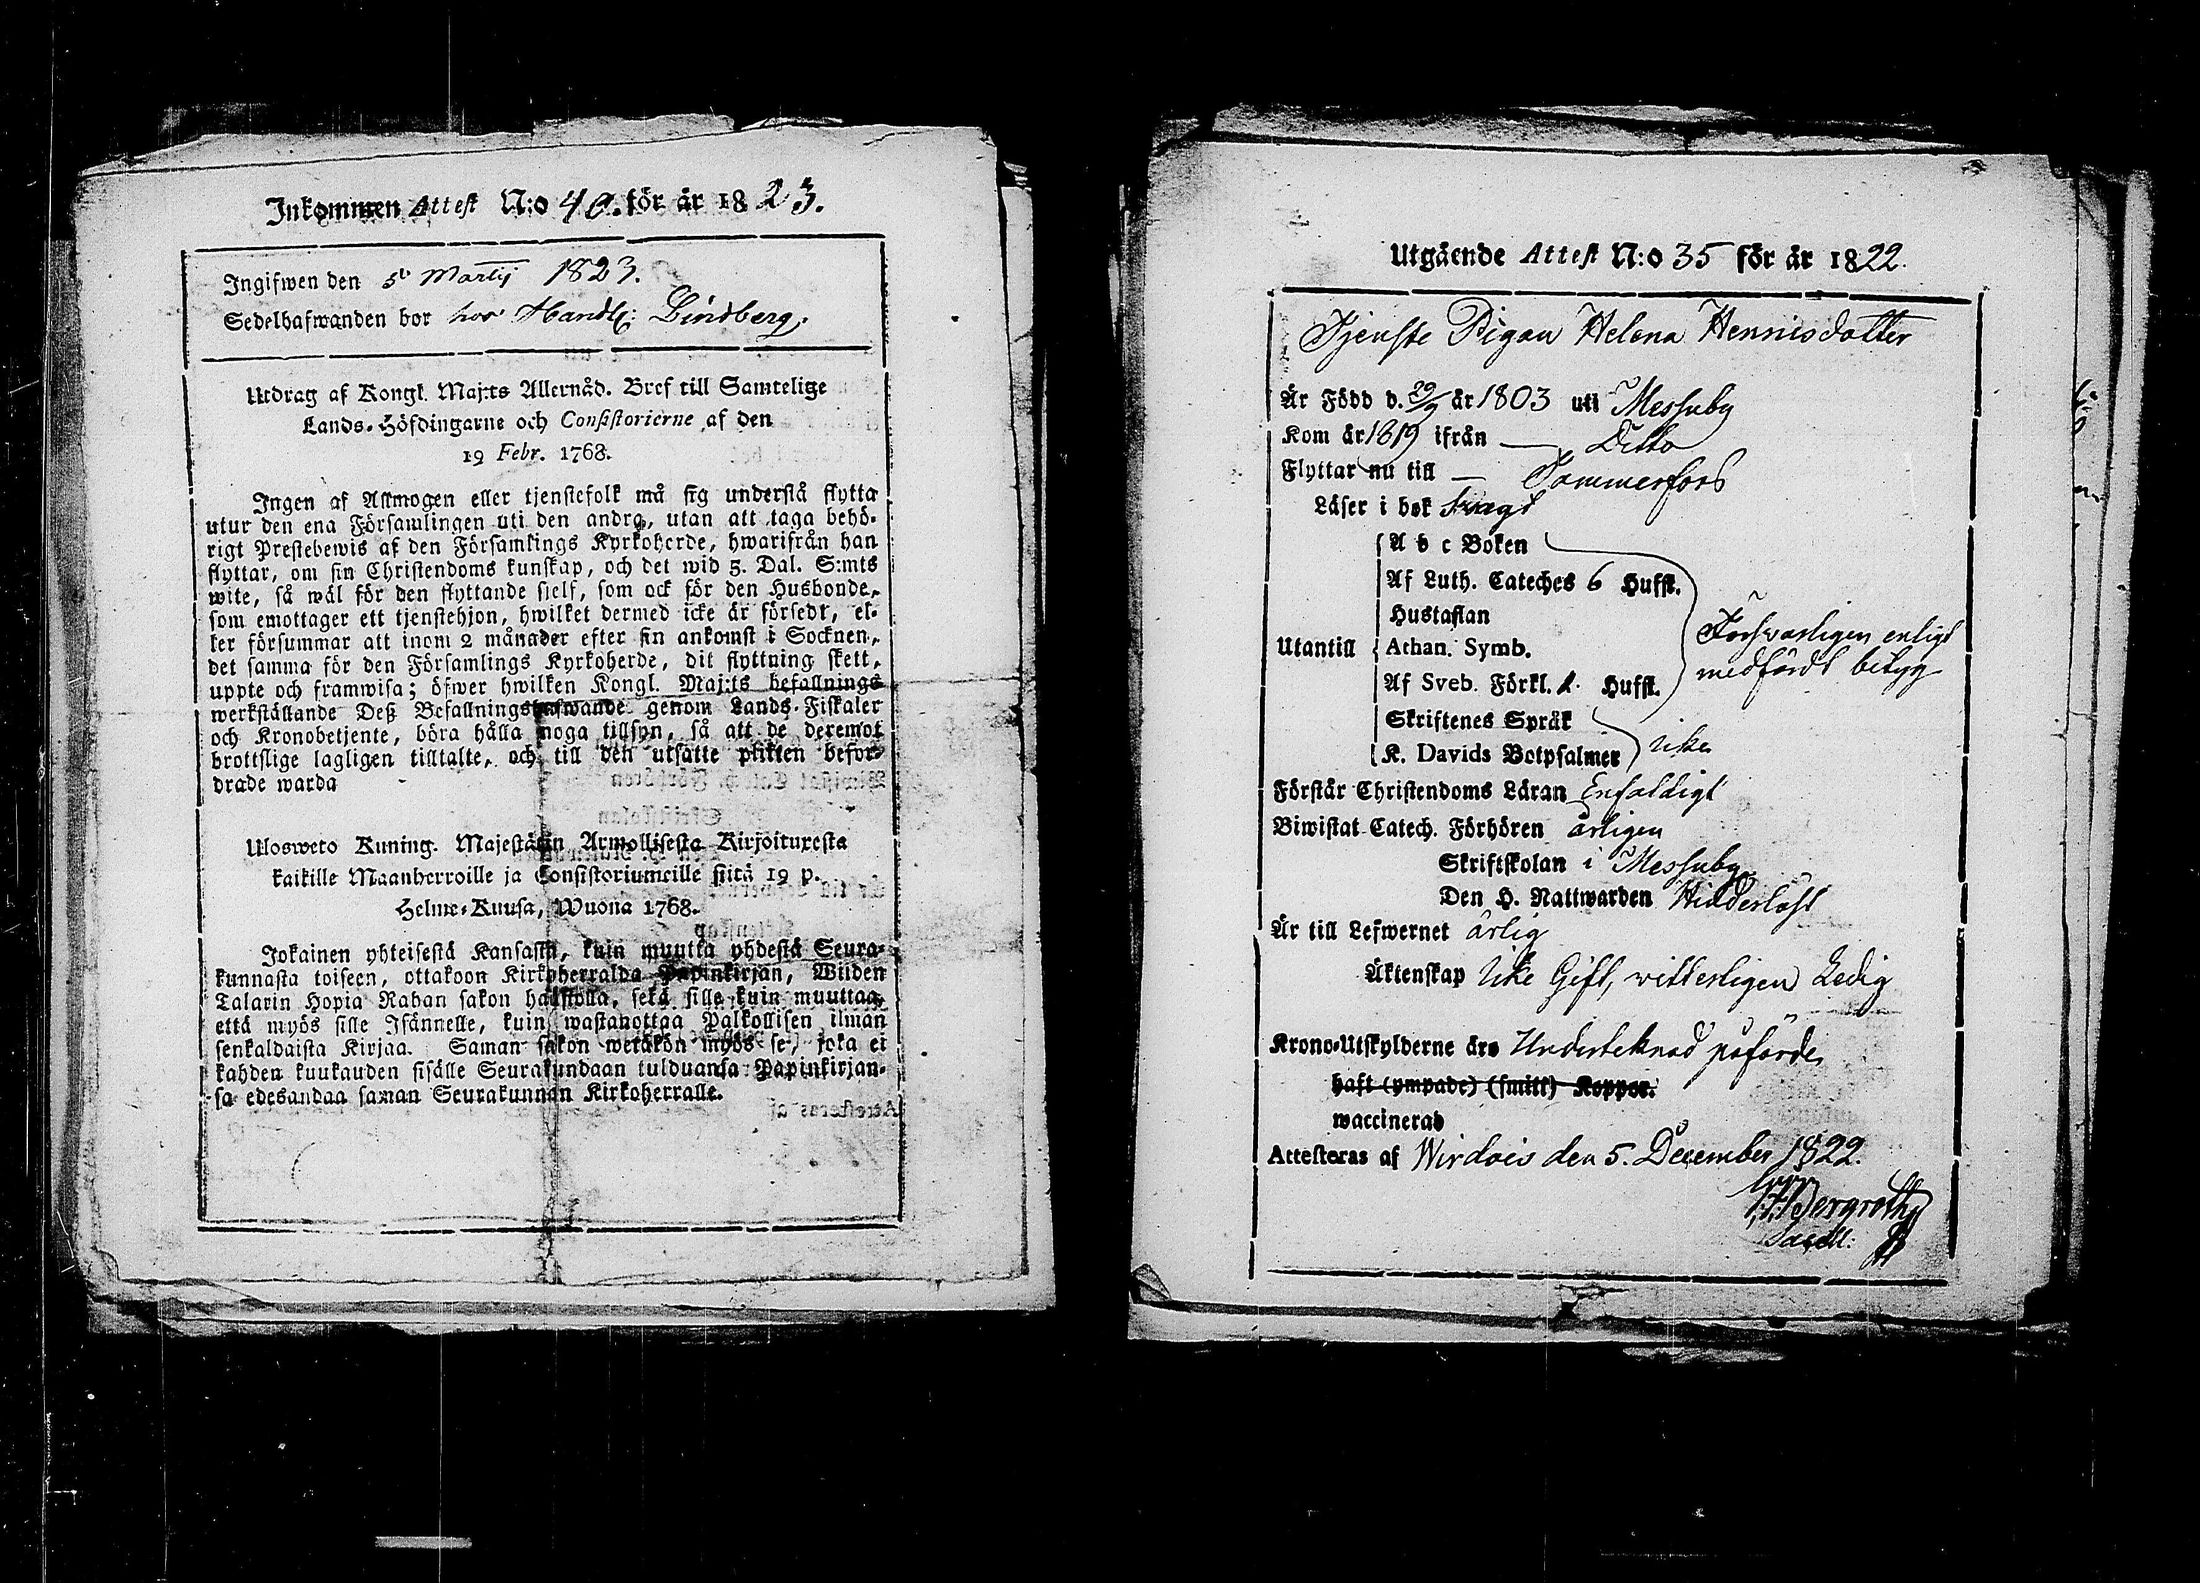 Inkommen Attest N:o 40. för år 1823.
Ingifwen den 5te Martij 1823.
Sedelhafwanden bor hos Handl: Lindberg.
Utdrag af Kongl. Maj:ts Allernåd. Bref till Samtelige
Lands-Höfdingarne och Consistorierne af den
19 Febr. 1768.
Ingen af Allmogen eller tjenstefolk må sig understå flytta
utur den ena Församlingen uti den andra, utan att taga behö-
rigt Prestebewis af den Församlings Kyrkoherde, hwarifrån han
flyttar, om sin Christendoms kunskap, och det wid 3. Dal. S:mts
wite, så wäl för den flyttande sielf, som ock för den Husbonde,
som emottager ett tjenstehjon, hwilket dermed icke är försedt, el-
ler försummar att inom 2 månader efter sin ankomst i Socknen,
det samma för den Församlings Kyrkoherde, dit flyttning skett,
uppte och framwisa; öfwer hwilken Kongl. Maj:ts befallnings
werkställande Deß Befallningshafwande genom Lands-Fiskaler
och Kronobetjente, böra hålla noga tillsyn, så att de deremot
brottslige lagligen tilltalte, och till den utsatte plikten befor-
drade warda
Ulosweto Kuning. Majestätin Armollisesta Kirjoituxesta
kaikille Maanherroille ja Consistoriumeille siitä 19 p.
Helme-Kuusa, Wuona 1768.
Jokainen yhteisestä Kansasta, kuin muutta yhdestä Seura-
kunnasta toiseen, ottakoon Kirkoherralda Papinkirjan, Wiiden
Talarin Hopia Rahan sakon haastolla, sekä sille kuin muuttaa,
että myös sille Isännelle, kuin wastanottaa Palkollisen ilman
senkaldaista Kirjaa. Saman sakon wetäkön myös se, joka ei
kahden kuukauden sisälle Seurakundaan tulduansa Papinkirjan-
sa edesandaa saman Seurakunnan Kirkoherralle.
Utgående Attest N:o 35 för år 1822.
Tjenste Pigan Helena Hennisdotter
Är Född d. 29/9 år 1803 uti Messuby
Kom år 1819 ifrån — Ditto
Flyttar nu till — Tammerfors
Läser i bok svagt
A b c Boken
Af Luth. Cateches 6 Hufst.
Hustaflan
Utantill Athan. Symb.
Försvarligen enligt
medfördt betyg
Af Sveb. Förkl. 1. Hufst.
Skriftenes Språk
K. Davids Botpsalmer Icke
Förstår Christendoms Läran Enfaldigt
Biwistat Catech. Förhören årligen
Skriftskolan i Messuby
Den H. Nattwarden Hinderlöst
Är till Lefwernet ärlig
Äktenskap Icke Gift, vitterligen Ledig
Krono-Utskylderne äro Undertecknad påförde
haft (ympade) (smitt) Koppor.
waccinerad
Attesteras af Wirdois den 5. December 1822.
Bergroth
Sacell: